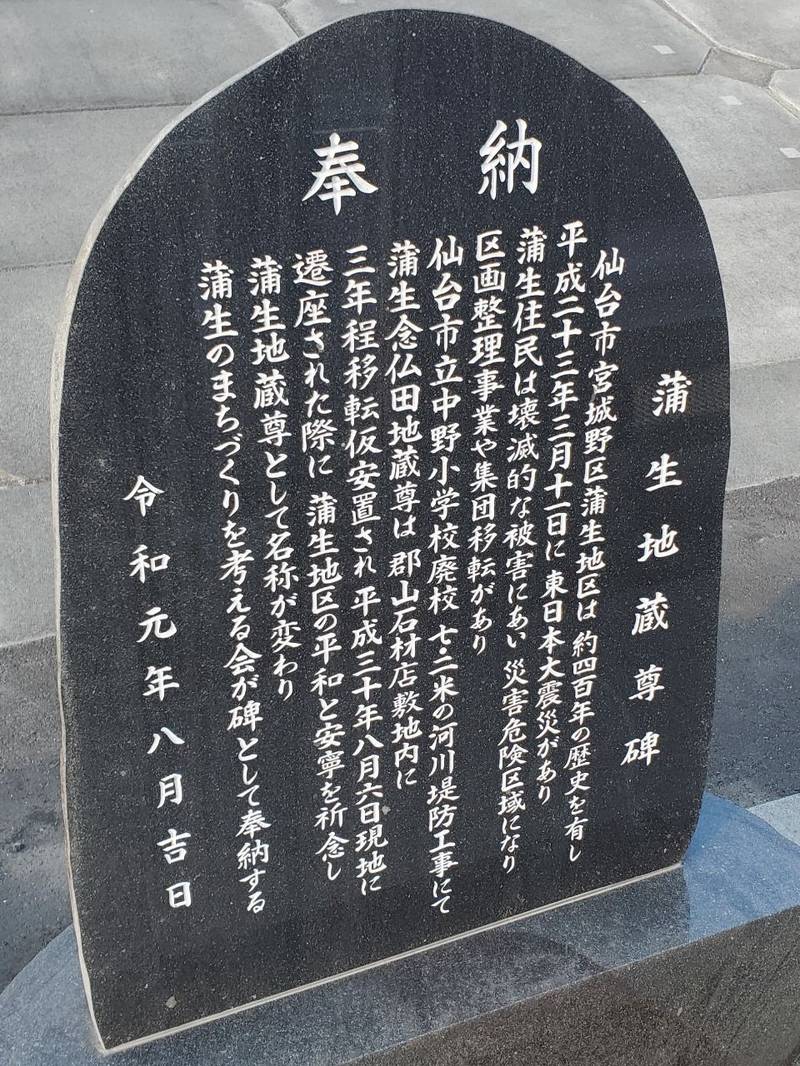 奉納
蒲生地蔵尊碑
仙台市宮城野区蒲生地区は 約四百年の歴史を有し
平成二十三年三月十一日に 東日本大震災があり
蒲生住民は壊滅的な被害にあい 災害危険区域になり
区画整理事業や集団移転があり
仙台市立中野小学校廃校 七・二米の河川堤防工事にて
蒲生念仏田地蔵尊は 郡山石材店敷地内に
三年程移転仮安置され 平成三十年八月六日現地に
遷座された際に 蒲生地区の平和と安寧を祈念し
蒲生地蔵尊として名称が変わり
蒲生のまちづくりを考える会が碑として奉納する
令和元年八月吉日